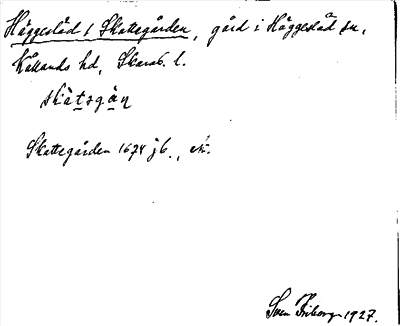 Häggesled 1 Skattegården, gård i Häggesled sn,
Kållands hd, Skarab. l.
skàtsgàn
Skattegården 1674 jb., etc.
Sven Friberg 1927.